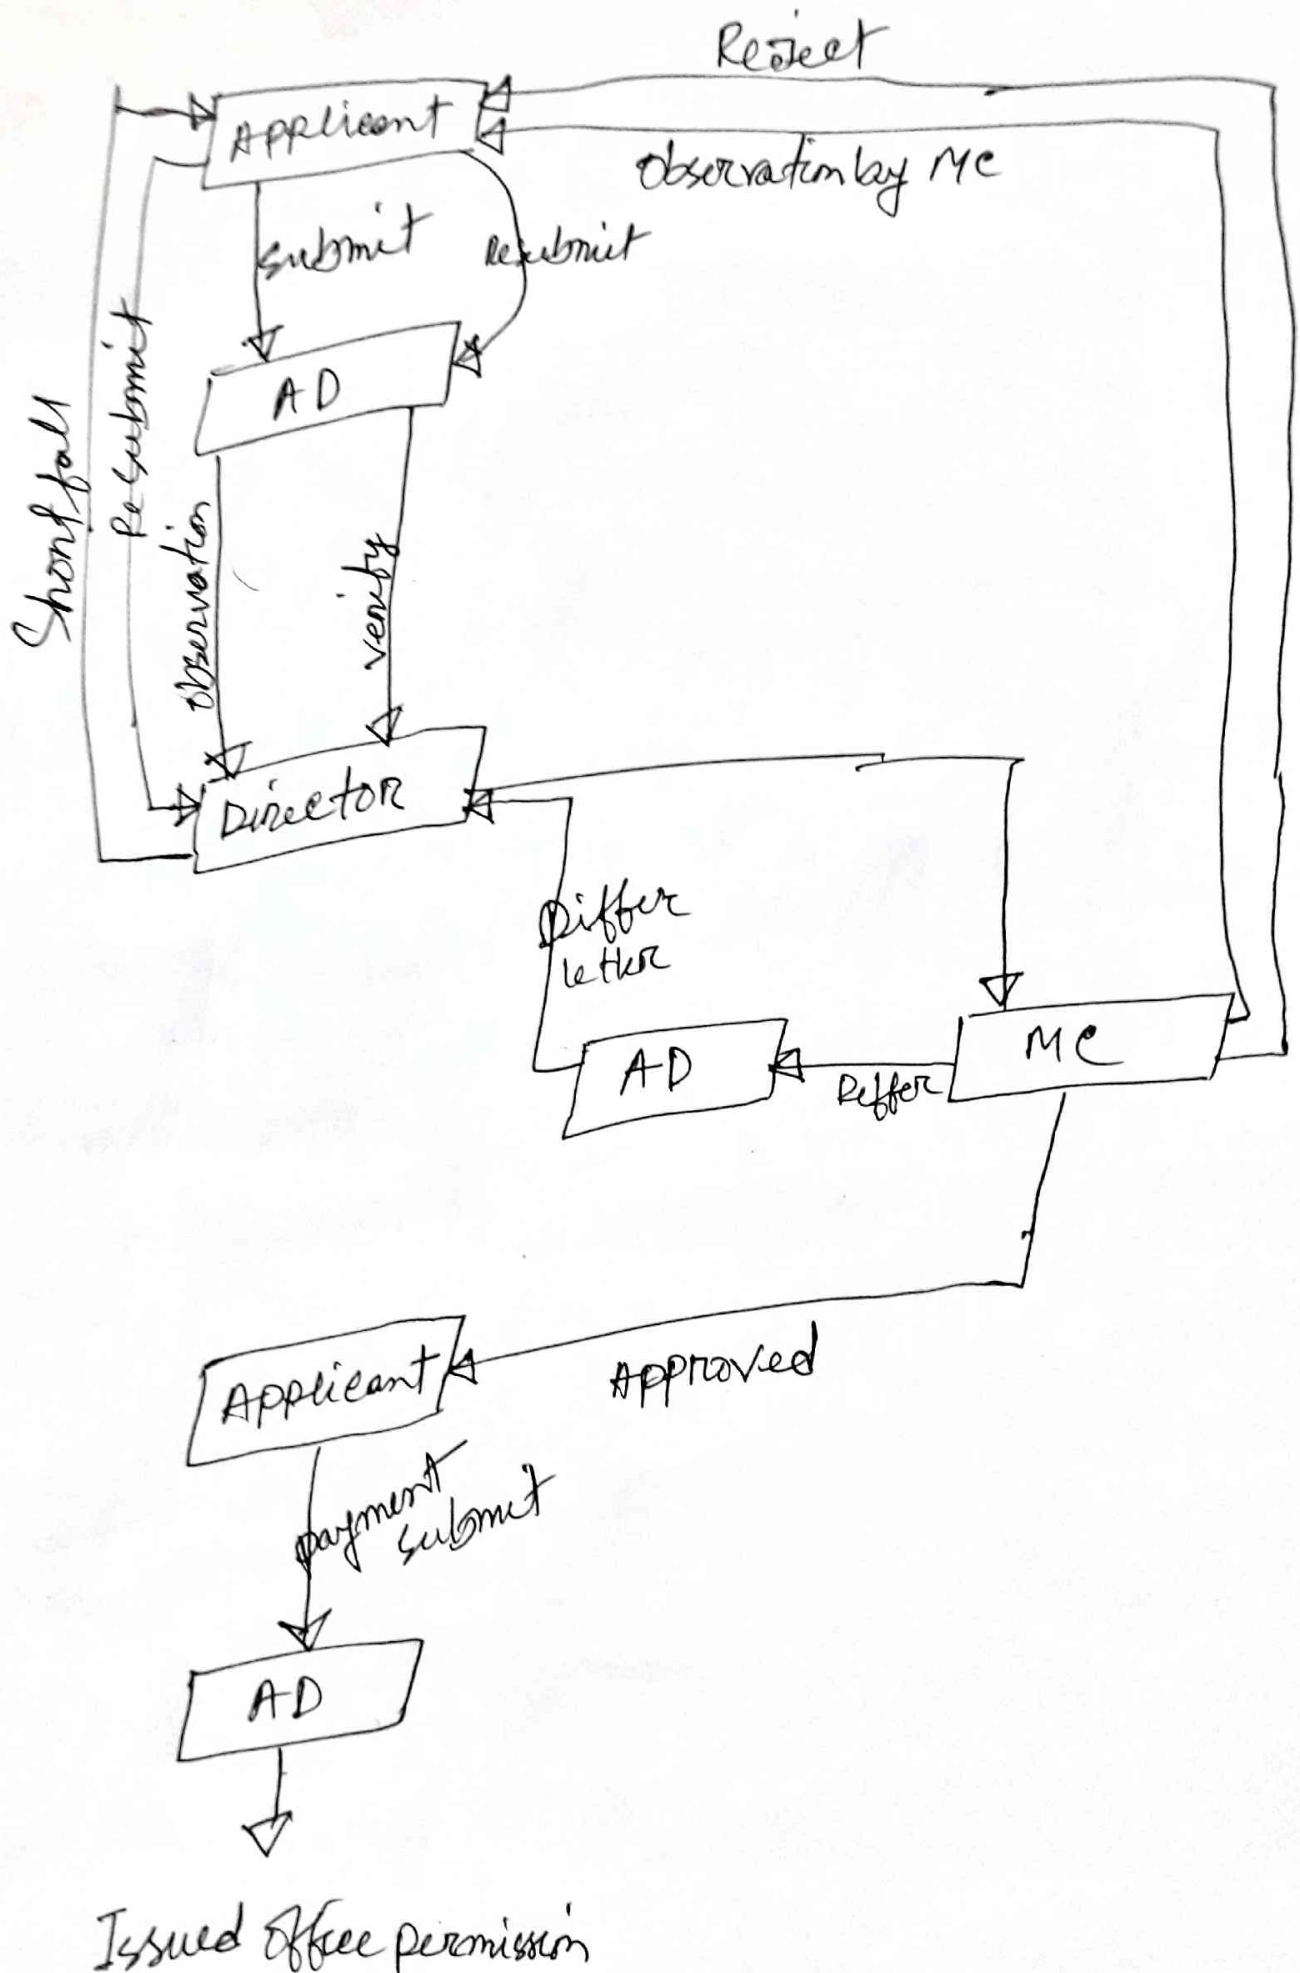 Reject
Applicant
Observation by MC
submit
Resubmit
AD
Shortfall
Resubmit
observation
verify
Director
Differ
letter
MC
AD
Reffer
Applicant
Approved
payment
submit
AD
Issued Office permission